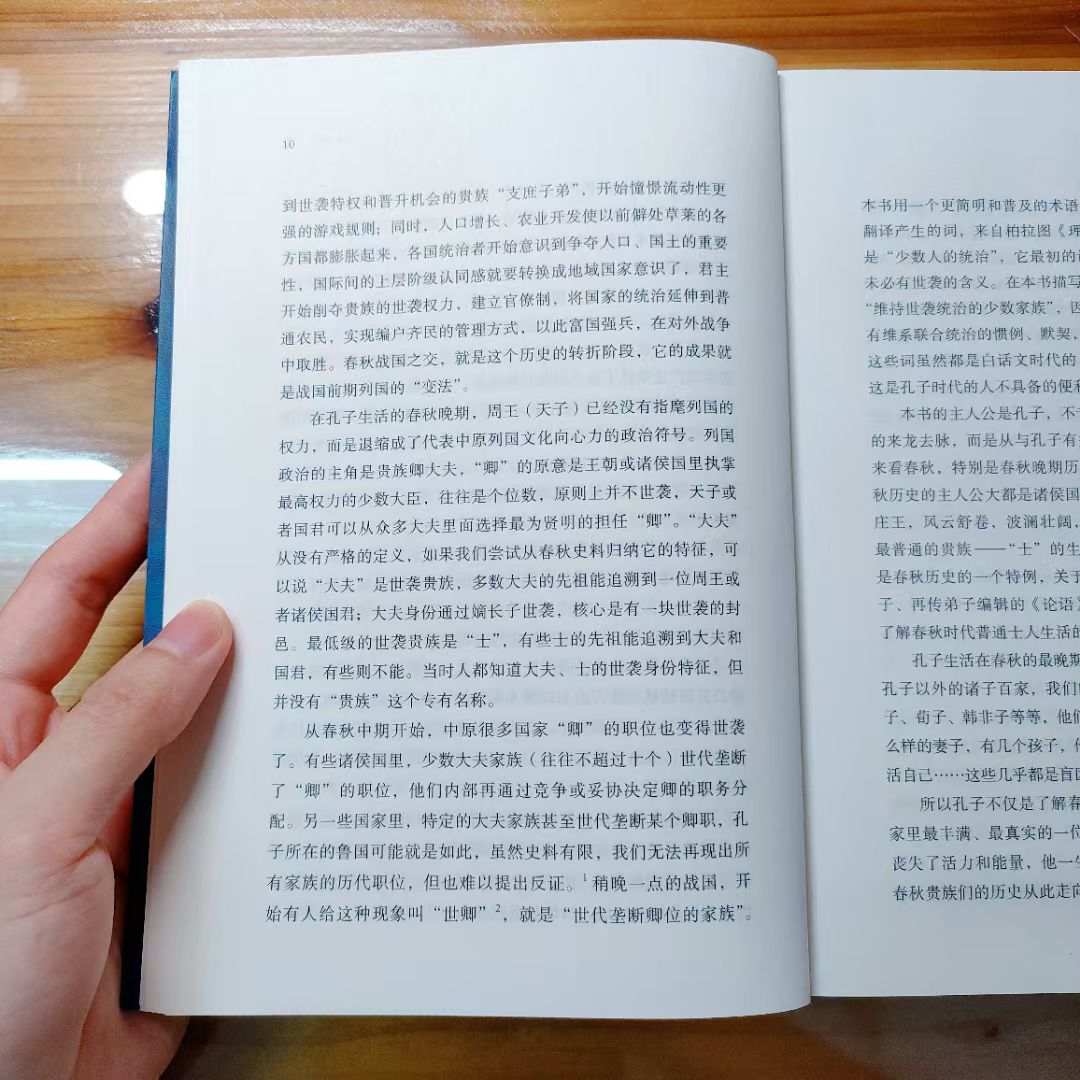 10
到世袭特权和晋升机会的贵族“支庶子弟”，开始憧憬流动性更
强的游戏规则；同时，人口增长、农业开发使以前僻处草莱的各
方国都膨胀起来，各国统治者开始意识到争夺人口、国土的重要
性，国际间的上层阶级认同感就要转换成地域国家意识了，君主
开始削夺贵族的世袭权力，建立官僚制，将国家的统治延伸到普
通农民，实现编户齐民的管理方式，以此富国强兵，在对外战争
中取胜。春秋战国之交，就是这个历史的转折阶段，它的成果就
是战国前期列国的“变法”。
在孔子生活的春秋晚期，周王（天子）已经没有指麾列国的
权力，而是退缩成了代表中原列国文化向心力的政治符号。列国
政治的主角是贵族卿大夫，“卿”的原意是王朝或诸侯国里执掌
最高权力的少数大臣，往往是个位数，原则上并不世袭，天子或
者国君可以从众多大夫里面选择最为贤明的担任“卿”。“大夫”
从没有严格的定义，如果我们尝试从春秋史料归纳它的特征，可
以说“大夫”是世袭贵族，多数大夫的先祖能追溯到一位周王或
者诸侯国君；大夫身份通过嫡长子世袭，核心是有一块世袭的封
邑。最低级的世袭贵族是“士”，有些士的先祖能追溯到大夫和
国君，有些则不能。当时人都知道大夫、士的世袭身份特征，但
并没有“贵族”这个专有名称。
从春秋中期开始，中原很多国家“卿”的职位也变得世袭
了。有些诸侯国里，少数大夫家族（往往不超过十个）世代垄断
了“卿”的职位，他们内部再通过竞争或妥协决定卿的职务分
配。另一些国家里，特定的大夫家族甚至世代垄断某个卿职，孔
子所在的鲁国可能就是如此，虽然史料有限，我们无法再现出所
有家族的历代职位，但也难以提出反证。1稍晚一点的战国，开
始有人给这种现象叫“世卿”2，就是“世代垄断卿位的家族”。
本书用一个更简明和普及的术语
翻译产生的词，来自柏拉图《理
是“少数人的统治”，它最初的
未必有世袭的含义。在本书描写
“维持世袭统治的少数家族”，因
有维系联合统治的惯例、默契，
这些词虽然都是白话文时代的
这是孔子时代的人不具备的便利
本书的主人公是孔子，不
的来龙去脉，而是从与孔子有
来看春秋，特别是春秋晚期历
秋历史的主人公大都是诸侯国
庄王，风云舒卷，波澜壮阔，
最普通的贵族——“士”的生
是春秋历史的一个特例，关于
子、再传弟子编辑的《论语》
了解春秋时代普通士人生活的
孔子生活在春秋的最晚期
孔子以外的诸子百家，我们
子、荀子、韩非子等等，他们
么样的妻子，有几个孩子，
活自己……这些几乎都是盲区
所以孔子不仅是了解春
家里最丰满、最真实的一位
丧失了活力和能量，他一生
春秋贵族们的历史从此走向